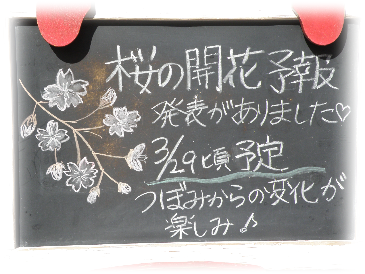 桜の開花予報
発表がありました♡
3/29頃予定
つぼみからの変化が
楽しみ♪